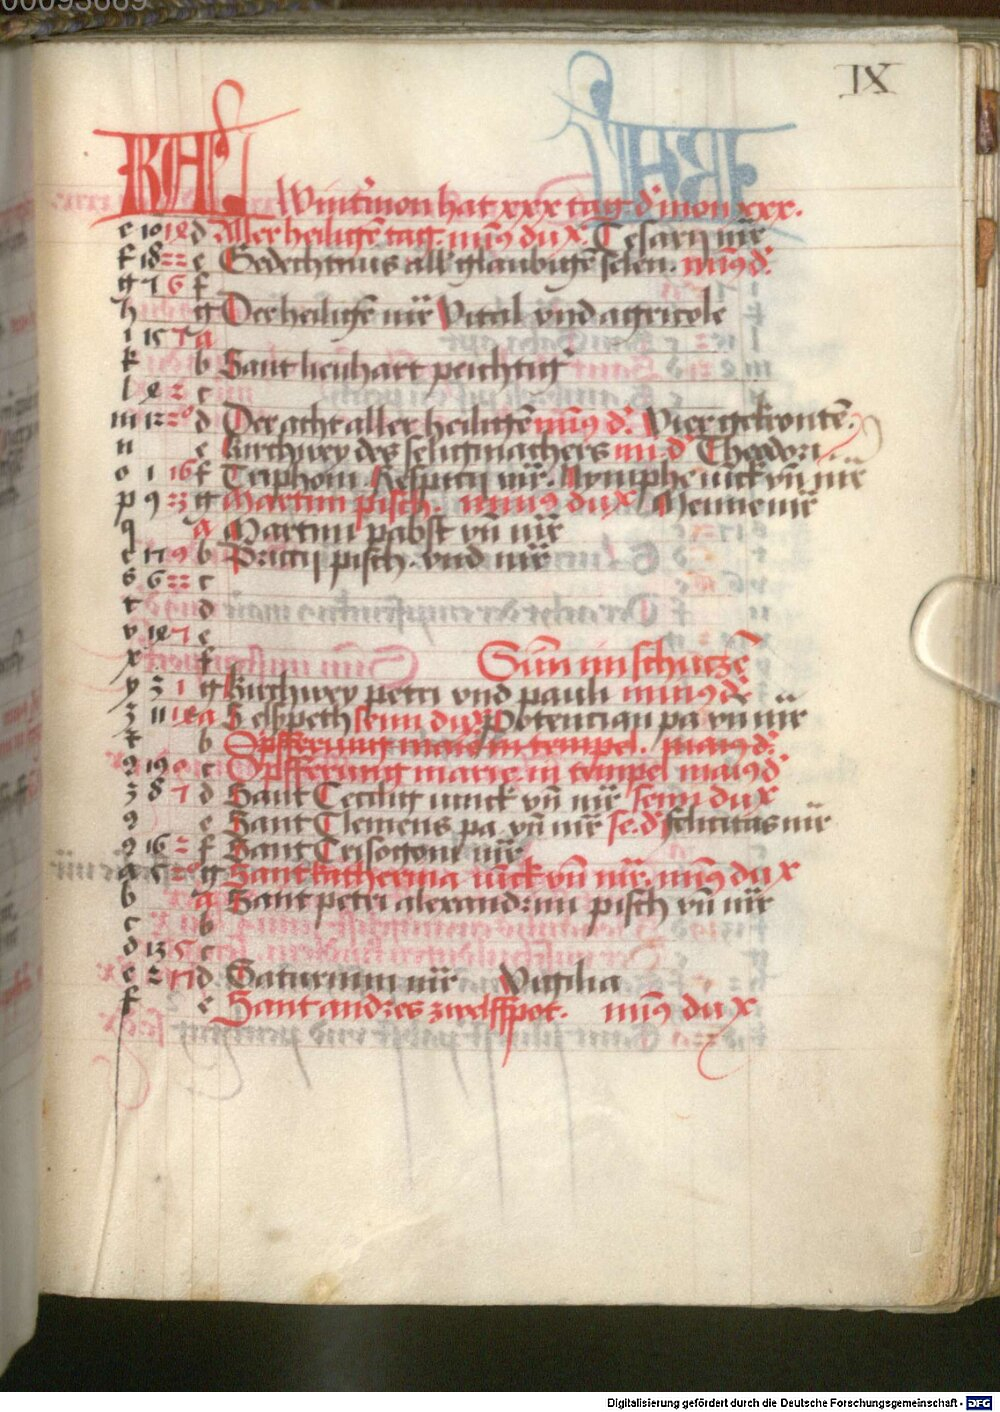 00093669
IX
KAL
Wint̃mon hat xxx tag d' mon xxx.
c 10 18 d Aller heiligẽ tag. min⁹ du x. Cesarij m̃r
f 18 22 e Gedechtnus all' glaubigẽ selen. min⁹ d'.
g 7 6 f
h g Der heilisẽ m̃r Vital vnd agricole
i 15 7 a
k b Sant lienhart peichtig'
l 2 c
m 12 20 d Der acht aller heiligẽ min⁹ d'. Vier gekrontẽ.
n e Kirchwey des seligmachers mi. d' Theodori
o 1 16 f Triphoni. Respicij m̃r. Nymphe iũck vñ m̃r
p 9 23 g Martini pisch. min⁹ du x Menne m̃r
q a Martini pabst vñ m̃r
c 17 9 b Priccij pisch. vnd m̃r
s 6 22 c
t d
v 18 7 e
x f Sũn im schutzẽ
y 3 1 g Kirchwey petri vnd pauli min⁹ d'
z 11 18 a Elspeth semi du x Potencian pa vñ m̃r
b Opfferung marie in tempel. mai⁹ d'.
9 19 c Opfferung marie in tempel mai⁹ d'
3 8 7 d Sant Cecilig iunck vñ m̃r semi du x
9 e Sant Clemens pa vñ m̃r se. d' felicitas m̃r
9 16 2 f Sant Crisogoni m̃r
a 5 20 g Sant katherina iũck vñ m̃r. min⁹ du x
b a Sant petri alexandrini pisch vñ m̃r
c b
d 13 5 c
e 2 17 d Saturnini m̃r Vigilia
f e Sant andres zwelffpot. min⁹ du x
Digitalisierung gefördert durch die Deutsche Forschungsgemeinschaft - DFG